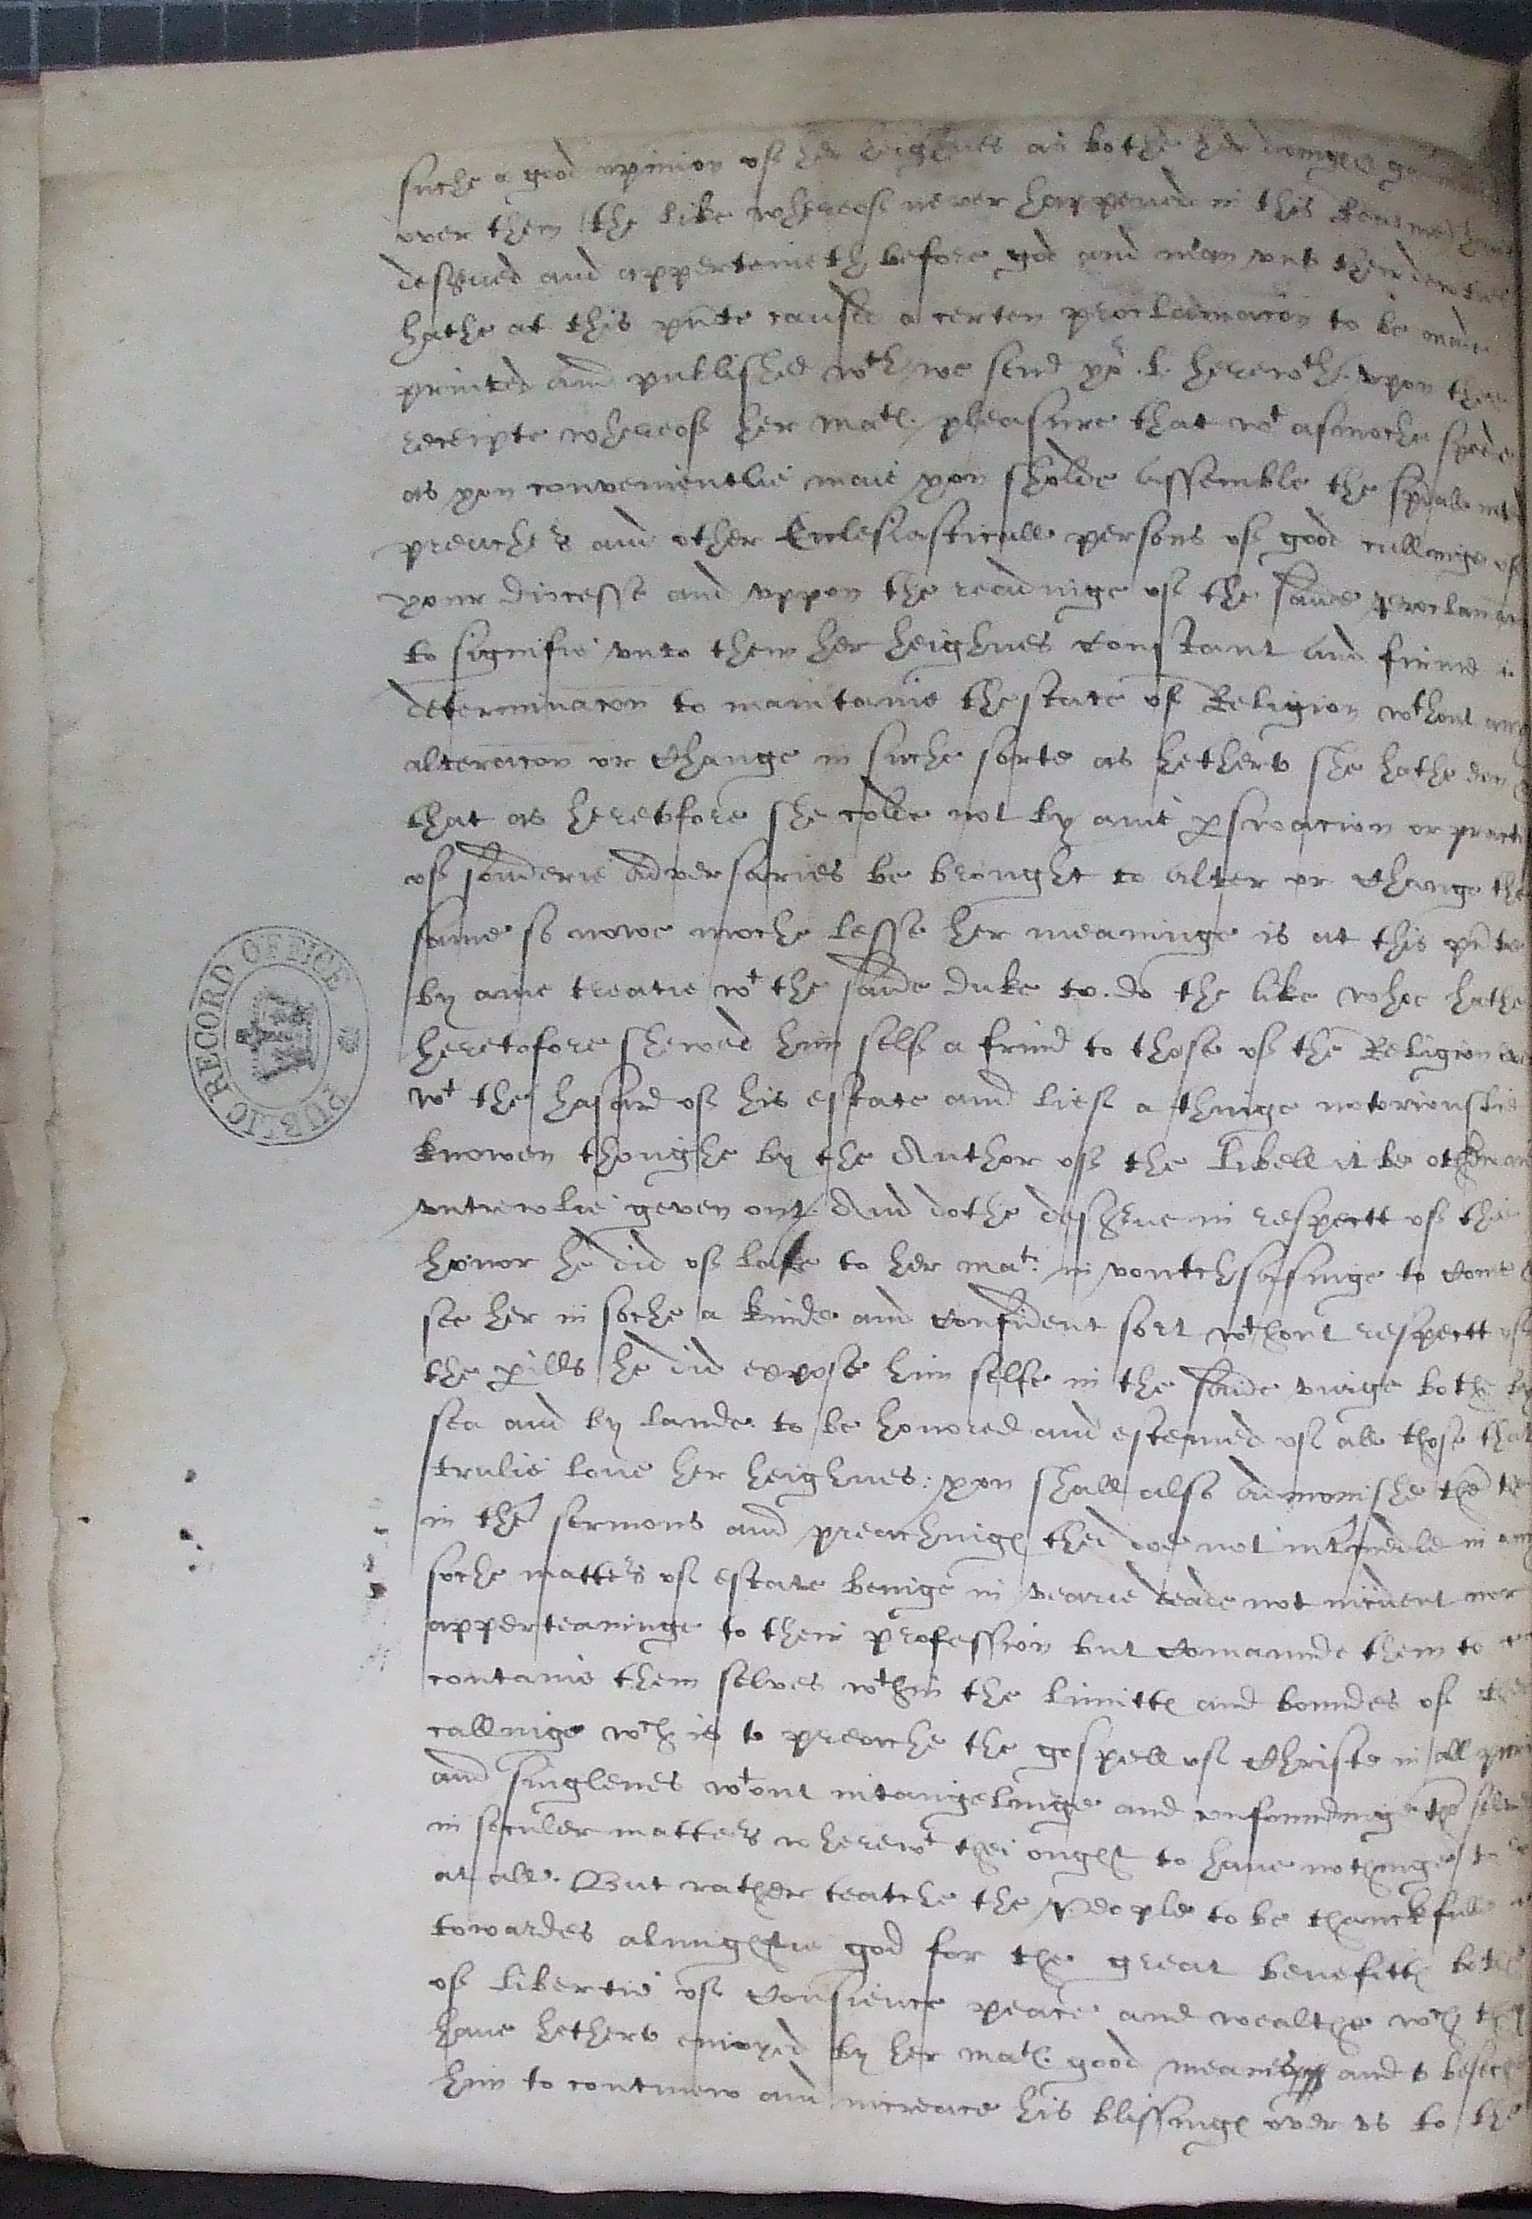 suche a good opinion of her heighnes as bothe her doinges
over them the like whereof never happened in this Realme
deserved and apperteineth before god and man unto their
hathe at this pñte caused a certen proclamacõn to be made
printed and published wch we send yor L. herewth. Upon the
receipte whereof her matẽ pleasure that wt asmoche spede
as you convenientlie maie you sholde assemble the spũall
preachers and other Ecclesiasticall persons of good callinge of
your diocesse and uppon the readinge of the saide proclama
to signifie unto them her heighnes constant and firme
determinacõn to maintaine the state of Religion wthout any
alteracõn or change in suche sorte as hetherto she hathe don
that as heretofore she colde not by anie pswacion or practi
of sonderie adversaries be brought to alter or change the
same so nowe moche lesse her meaninge is at this pñte
by anie treatie wt the saide duke to do the like whoe hathe
heretofore shewed him self a frind to those of the Religion
wt the hasard of his estate and lief a thinge notoriouslie
knowen thoughe by the Author of the Libell it be
untrewlie geven out. And dothe deserve in respectt of the
honor he did of late to her matẽ in voutchsafinge to come
see her in soche a kinde and confident sort wthout respectt of
the pills he did expose him selfe in the saide viage bothe by
sea and by lande to be honored and estemed of all those that
trulie love her heighnes: you shall also admonishe thẽ
in their sermons and preachinges thei doe not intermedle in any
soche matters of estate beinge in vearie deade not incident nor
apperteaninge to their profession but comaunde them to
containe them selves wthin the limittes and boundes of
callinge wch is to preache the gospell of Christe in all puri
and singlenes wtout intangelinge and confoundinge
in seculer matters wherewt thei ought to have nothinge to
at all. But rather teatche the People to be thanckfull
towardes almightie god for the great benefittes bothe
of libertie of Consience peace and wealthe wch thei
have hetherto enioyed by her matẽ good meanes and to beseche
him to continew and increace his blissinges over us to the
PUBLIC RECORD OFFICE